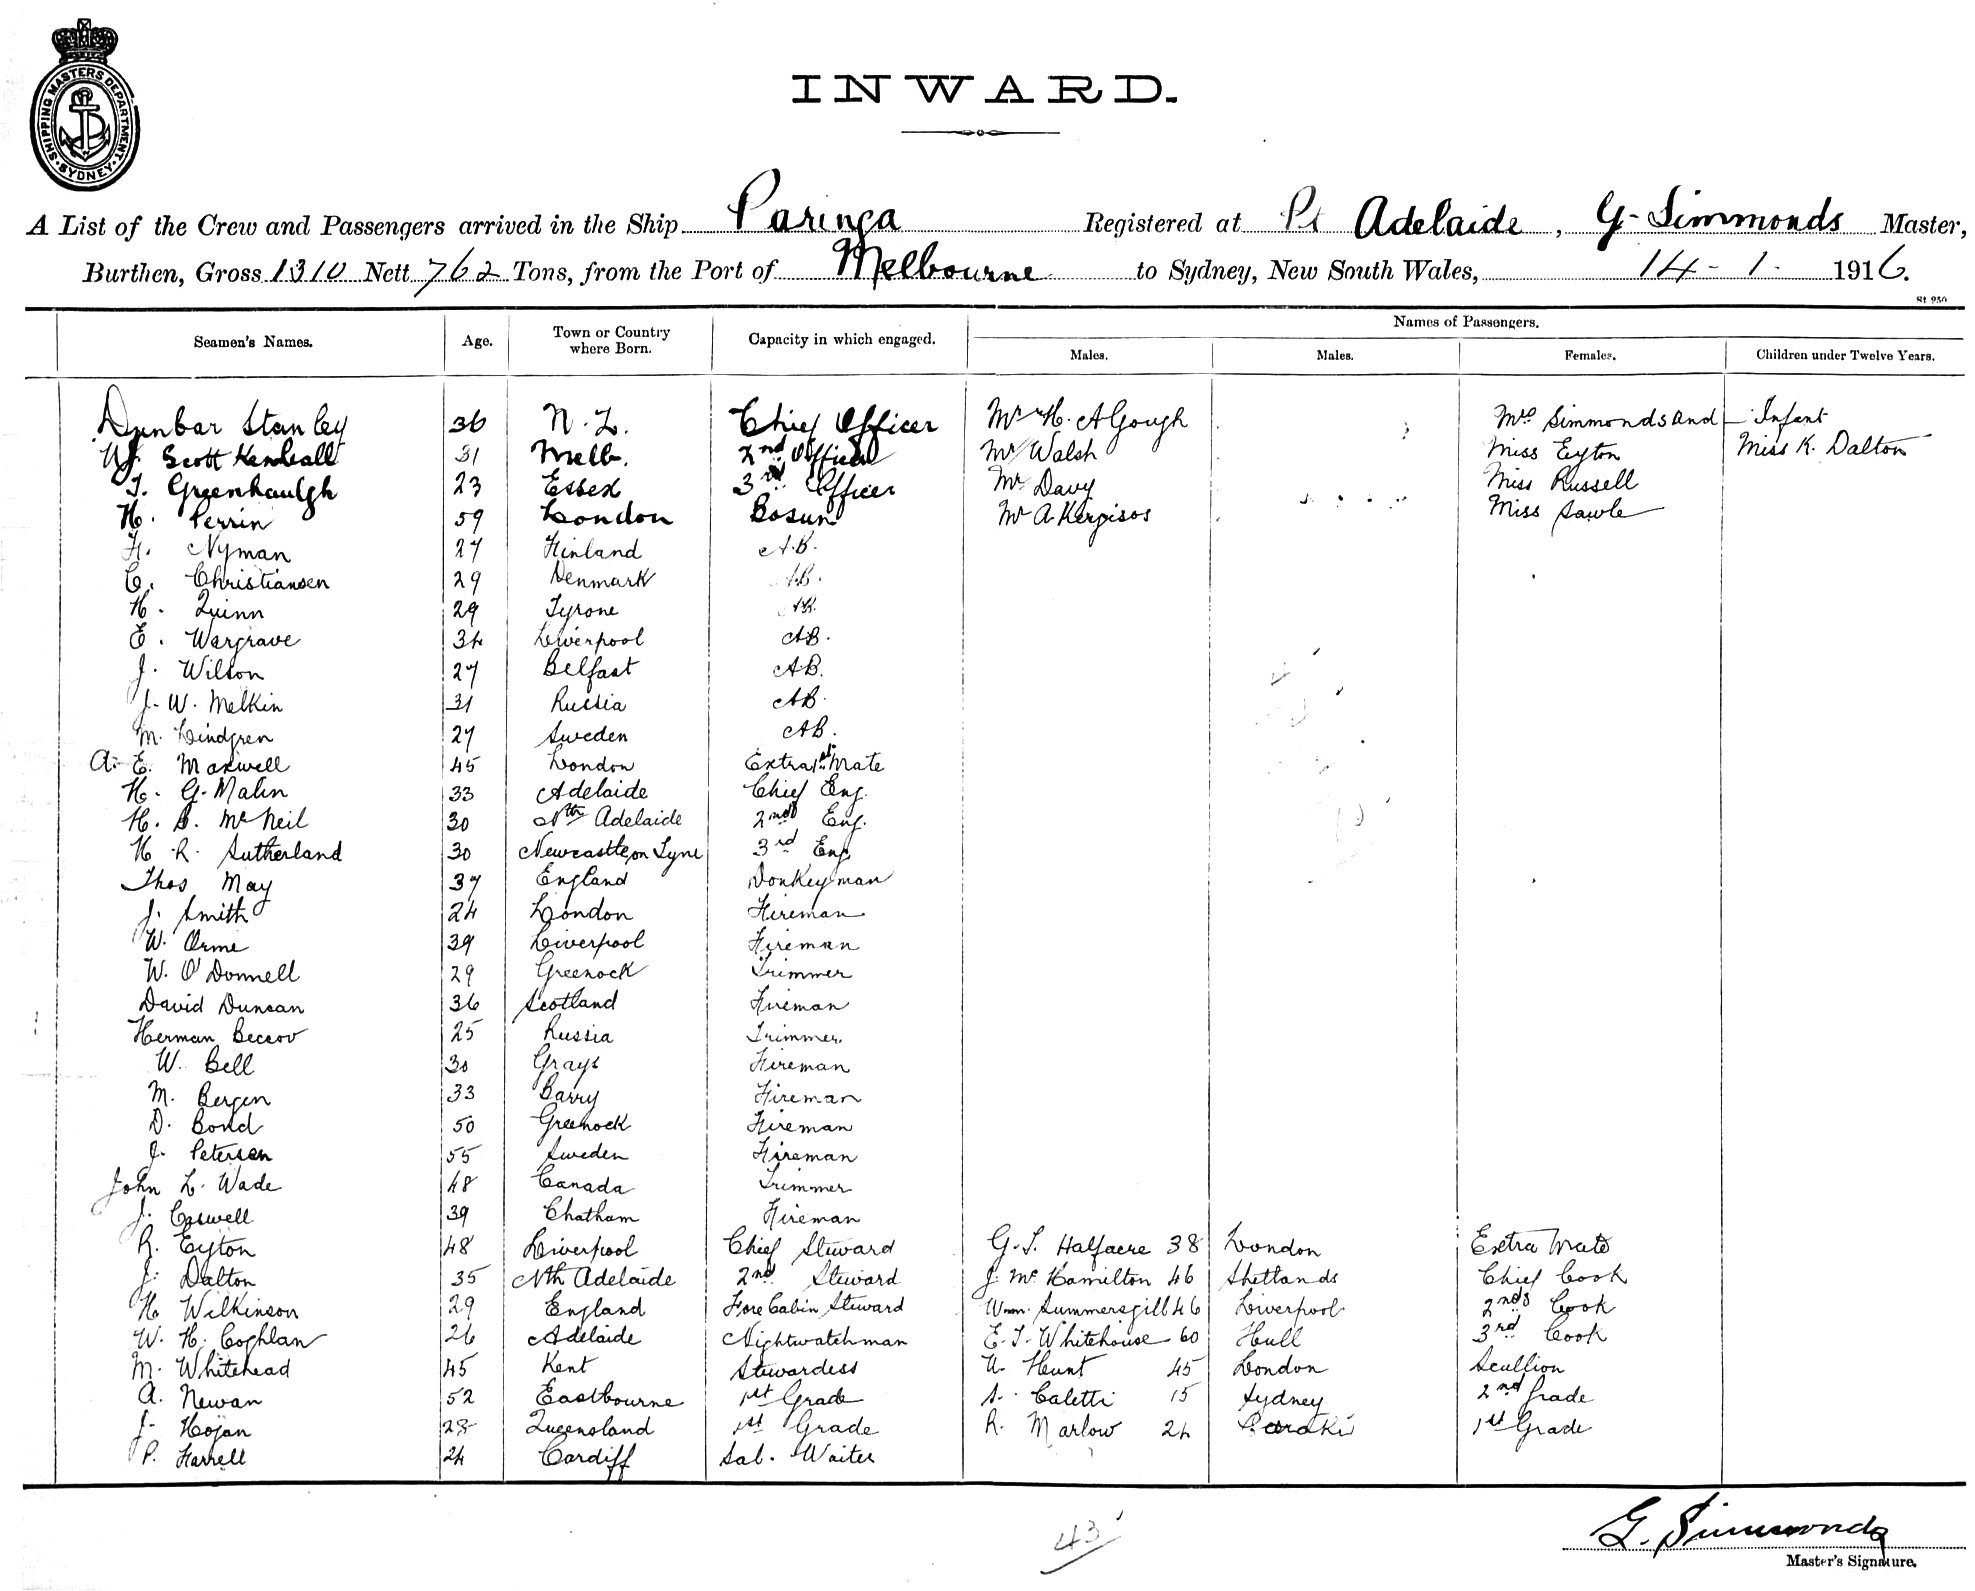 SHIPPING MASTERS DEPARTMENT. SYDNEY.
INWARD.
A List of the Crew and Passengers arrived in the Ship Paringa Registered at Pt Adelaide, G. Simmonds Master,
Burthen, Gross 1310 Nett 762 Tons, from the Port of Melbourne to Sydney, New South Wales, 14-1-1916.
St 950
Seamen's Names. Age. Town or Country where Born. Capacity in which engaged. Names of Passengers.
Males. Males. Females. Children under Twelve Years.
Dunbar Stanley 36 N.Z. Chief Officer Mr H. A Gough Mrs Simmonds and Infant
W. Scott Kendall 31 Melb. 2nd Officer Mr Walsh Miss Eyton Miss K. Dalton
T. Greenhaulgh 23 Essex 3rd Officer Mr Davy Miss Russell
H. Perrin 59 London Bosun Mr A Kergisos Miss Sawle
F. Nyman 27 Finland A.B.
C. Christiansen 29 Denmark A.B.
H. Quinn 29 Tyrone A.B.
E. Wargrave 34 Liverpool A.B.
J. Wilson 27 Belfast A.B.
J. W. Melkin 31 Russia A.B.
M. Lindgren 27 Sweden A.B.
A. E. Maxwell 45 London Extra Mate
H. G. Malin 33 Adelaide Chief Eng.
H. S. McNeil 30 Nth Adelaide 2nd Eng.
H. R. Sutherland 30 Newcastle on Tyne 3rd Eng
Thos May 37 England Donkeyman
J. Smith 24 London Fireman
W. Orme 39 Liverpool Fireman
W. O'Donnell 29 Greenock Trimmer
David Duncan 36 Scotland Fireman
Herman Becrov 25 Russia Trimmer
W. Bell 30 Grays Fireman
M. Bergen 33 Barry Fireman
D. Bond 50 Greenock Fireman
J. Petersen 55 Sweden Fireman
John L. Wade 48 Canada Trimmer
J. Caswell 39 Chatham Fireman
R. Eyton 48 Liverpool Chief Steward G. T. Halfacre 38 London Extra Mate
J. Dalton 35 Nth Adelaide 2nd Steward J. McHamilton 46 Shetlands Chief Cook
H Wilkinson 29 England Fore Cabin Steward Wm. Summersgill 46 Liverpool 2nd Cook
W. H. Coghlan 26 Adelaide Nightwatchman E. T. Whitehouse 60 Hull 3rd Cook
M. Whitehead 45 Kent Stewardess W. Hunt 45 London Scullion
A. Newan 52 Eastbourne 1st Grade S. Caletti 15 Sydney 2nd Grade
J. Hogan 28 Queensland 1st Grade R. Marlow 24 1st Grade
P. Farrell 24 Cardiff Sal. Waiter
43
G. Simmonds
Master's Signature.